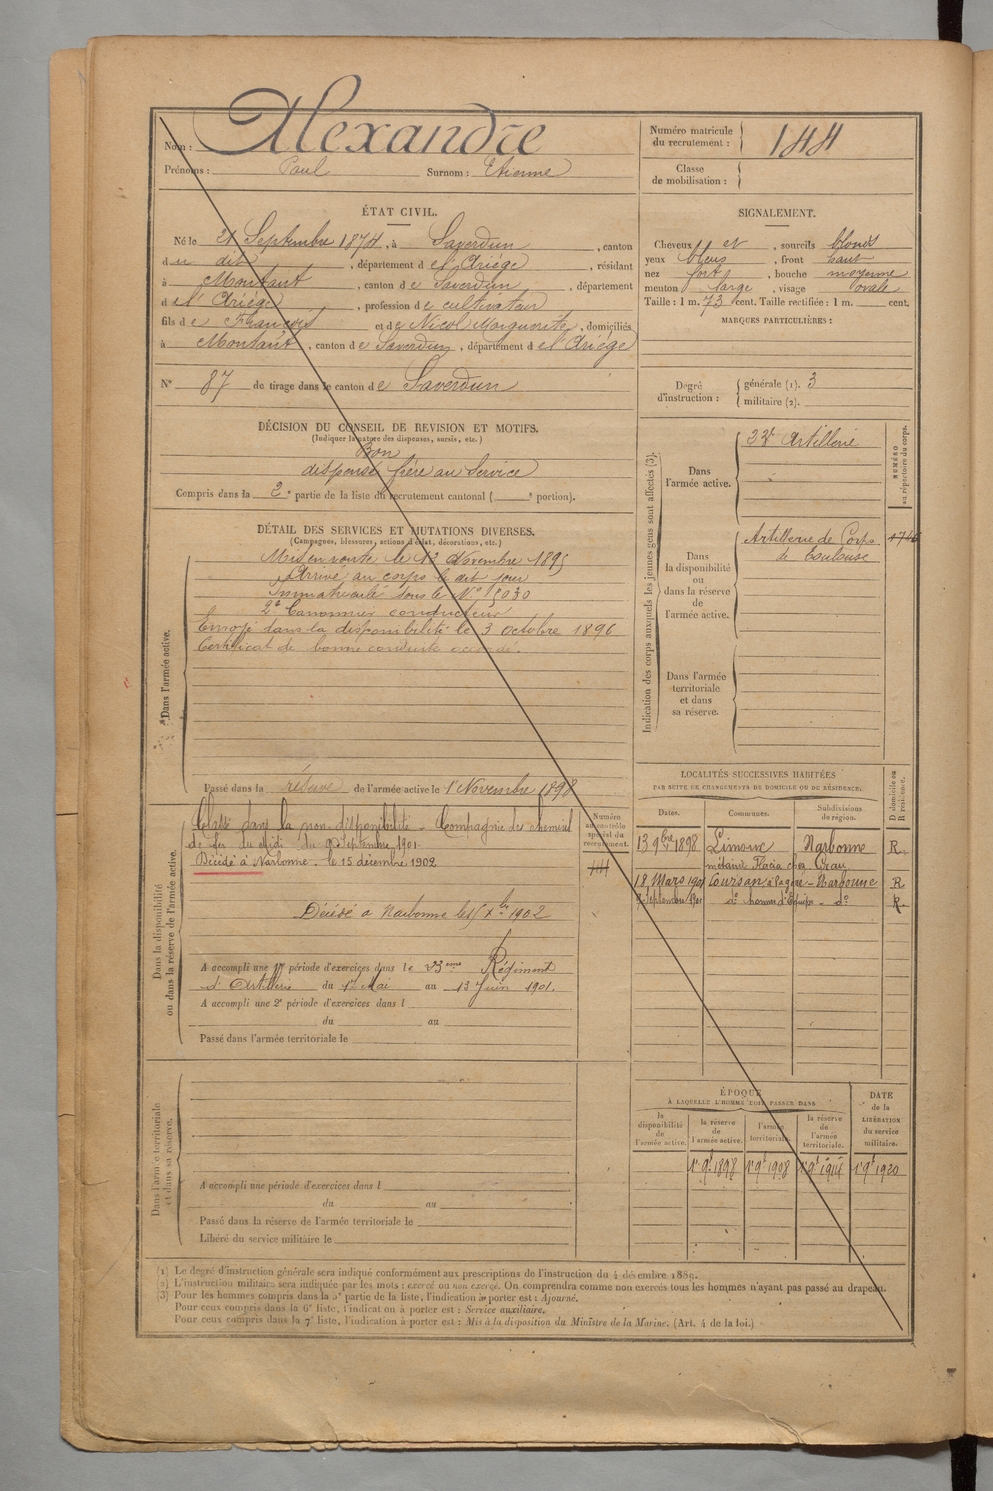 Nom : Alexandre
Prénoms : Paul Surnom : Etienne
Numéro matricule du recrutement : 144
Classe de mobilisation :
ÉTAT CIVIL.
Né le 21 Septembre 1874, à Saverdun, canton
du dit, département de l'Ariége, résidant
à Montaut, canton de Saverdun, département
de l'Ariége, profession de cultivateur
fils de François et de Nicol Marguerite, domiciliés
à Montaut, canton de Saverdun, département de l'Ariége
N° 87 de tirage dans le canton de Saverdun
SIGNALEMENT.
Cheveux et, sourcils blonds
yeux bleus, front haut
nez fort, bouche moyenne
menton large, visage ovale
Taille : 1 m. 73 cent. Taille rectifiée : 1 m. cent.
MARQUES PARTICULIÈRES :
Degré d'instruction : générale (1). 3
militaire (2).
DÉCISION DU CONSEIL DE REVISION ET MOTIFS.
(Indiquer la nature des dispenses, sursis, etc.)
Bon
dispensé frère au Service
Compris dans la 2e partie de la liste du recrutement cantonal ( e portion).
DÉTAIL DES SERVICES ET MUTATIONS DIVERSES.
(Campagnes, blessures, actions d'éclat, décorations, etc.)
Dans l'armée active.
Mis en route le 13 Novembre 1895
Arrivé au corps le dit jour
Immatriculé sous le N° 18030
2e Canonnier conducteur
Envoyé dans la disponibilité le 3 octobre 1896
Certificat de bonne conduite accordé.
Passé dans la réserve de l'armée active le 1er Novembre 1898
Indication des corps auxquels les jeunes gens sont affectés (3).
NUMÉRO au répertoire du corps.
Dans l'armée active.
23e Artillerie
Dans la disponibilité ou dans la réserve de l'armée active.
Artillerie de Corps
de Toulouse
Dans l'armée territoriale et dans sa réserve.
Dans la disponibilité ou dans la réserve de l'armée active.
Classé dans la non disponibilité - Compagnie des chemins
de fer du Midi du 9 Septembre 1901.
Décédé à Narbonne. le 15 décembre 1902
Numéro au contrôle spécial du recrutement.
Décédé à Narbonne le 15 Xbre 1902
A accompli une 1re période d'exercices dans le 23eme Régiment
d'Artillerie du 17 Mai au 13 Juin 1901.
A accompli une 2e période d'exercices dans l
du au
Passé dans l'armée territoriale le
LOCALITÉS SUCCESSIVES HABITÉES
PAR SUITE DE CHANGEMENTS DE DOMICILE OU DE RÉSIDENCE.
Dates. Communes. Subdivisions de région. D domicile ou R résidence.
13 9bre 1898 Limoux Narbonne R.
métairie chez
18 Mars 1901 Coursan à la gare - Narbonne R
9 Septembre 1901 do homme d'Equipe - do R.
Dans l'armée territoriale et dans sa réserve.
A accompli une période d'exercices dans l
du au
Passé dans la réserve de l'armée territoriale le
Libéré du service militaire le
ÉPOQUE
À LAQUELLE L'HOMME DOIT PASSER DANS
la disponibilité de l'armée active. la réserve de l'armée active. l'armée territoriale. la réserve de l'armée territoriale. DATE de la LIBÉRATION du service militaire.
1er 9bre 1898 1er 9bre 1908 1er 9bre 1914 1er 9bre 1920
(1) Le degré d'instruction générale sera indiqué conformément aux prescriptions de l'instruction du 4 décembre 1889.
(2) L'instruction militaire sera indiquée par les mots : exercé ou non exercé. On comprendra comme non exercés tous les hommes n'ayant pas passé au drapeau.
(3) Pour les hommes compris dans la 5e partie de la liste, l'indication à porter est : Ajourné.
Pour ceux compris dans la 6e liste, l'indication à porter est : Service auxiliaire.
Pour ceux compris dans la 7e liste, l'indication à porter est : Mis à la disposition du Ministre de la Marine. (Art. 4 de la loi.)